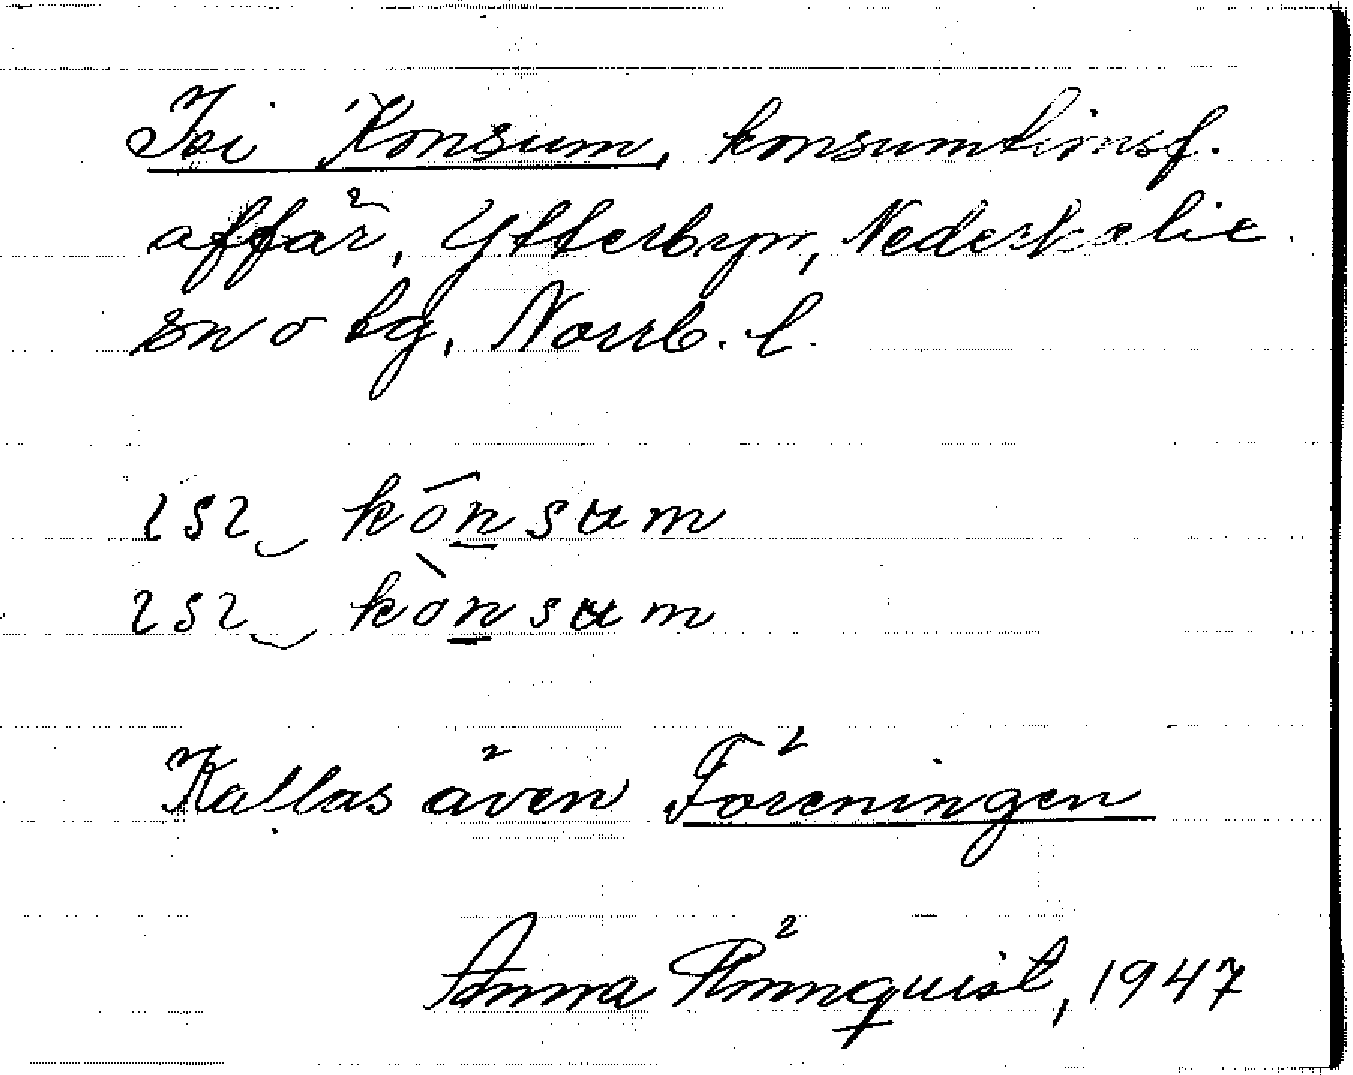 Konsum, konsumtionsf.
affär, Ytterbyn, Nederkalix
sn o tg, Norrb. l.
kōnsum
kònsum
Kallas även Föreningen
Anna Rönnquist, 1947